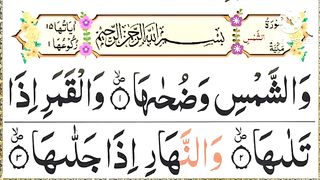 سُوْرَةُ الشَّمْسِ مَكِّيَّةٌ
بِسْمِ اللّٰهِ الرَّحْمٰنِ الرَّحِيْمِ
اٰيَاتُهَا ١٥ رُكُوْعُهَا ١
وَالشَّمْسِ وَضُحٰىهَا ۙ ١ وَالْقَمَرِ اِذَا
تَلٰىهَا ۙ ٢ وَالنَّهَارِ اِذَا جَلّٰىهَا ۙ ٣